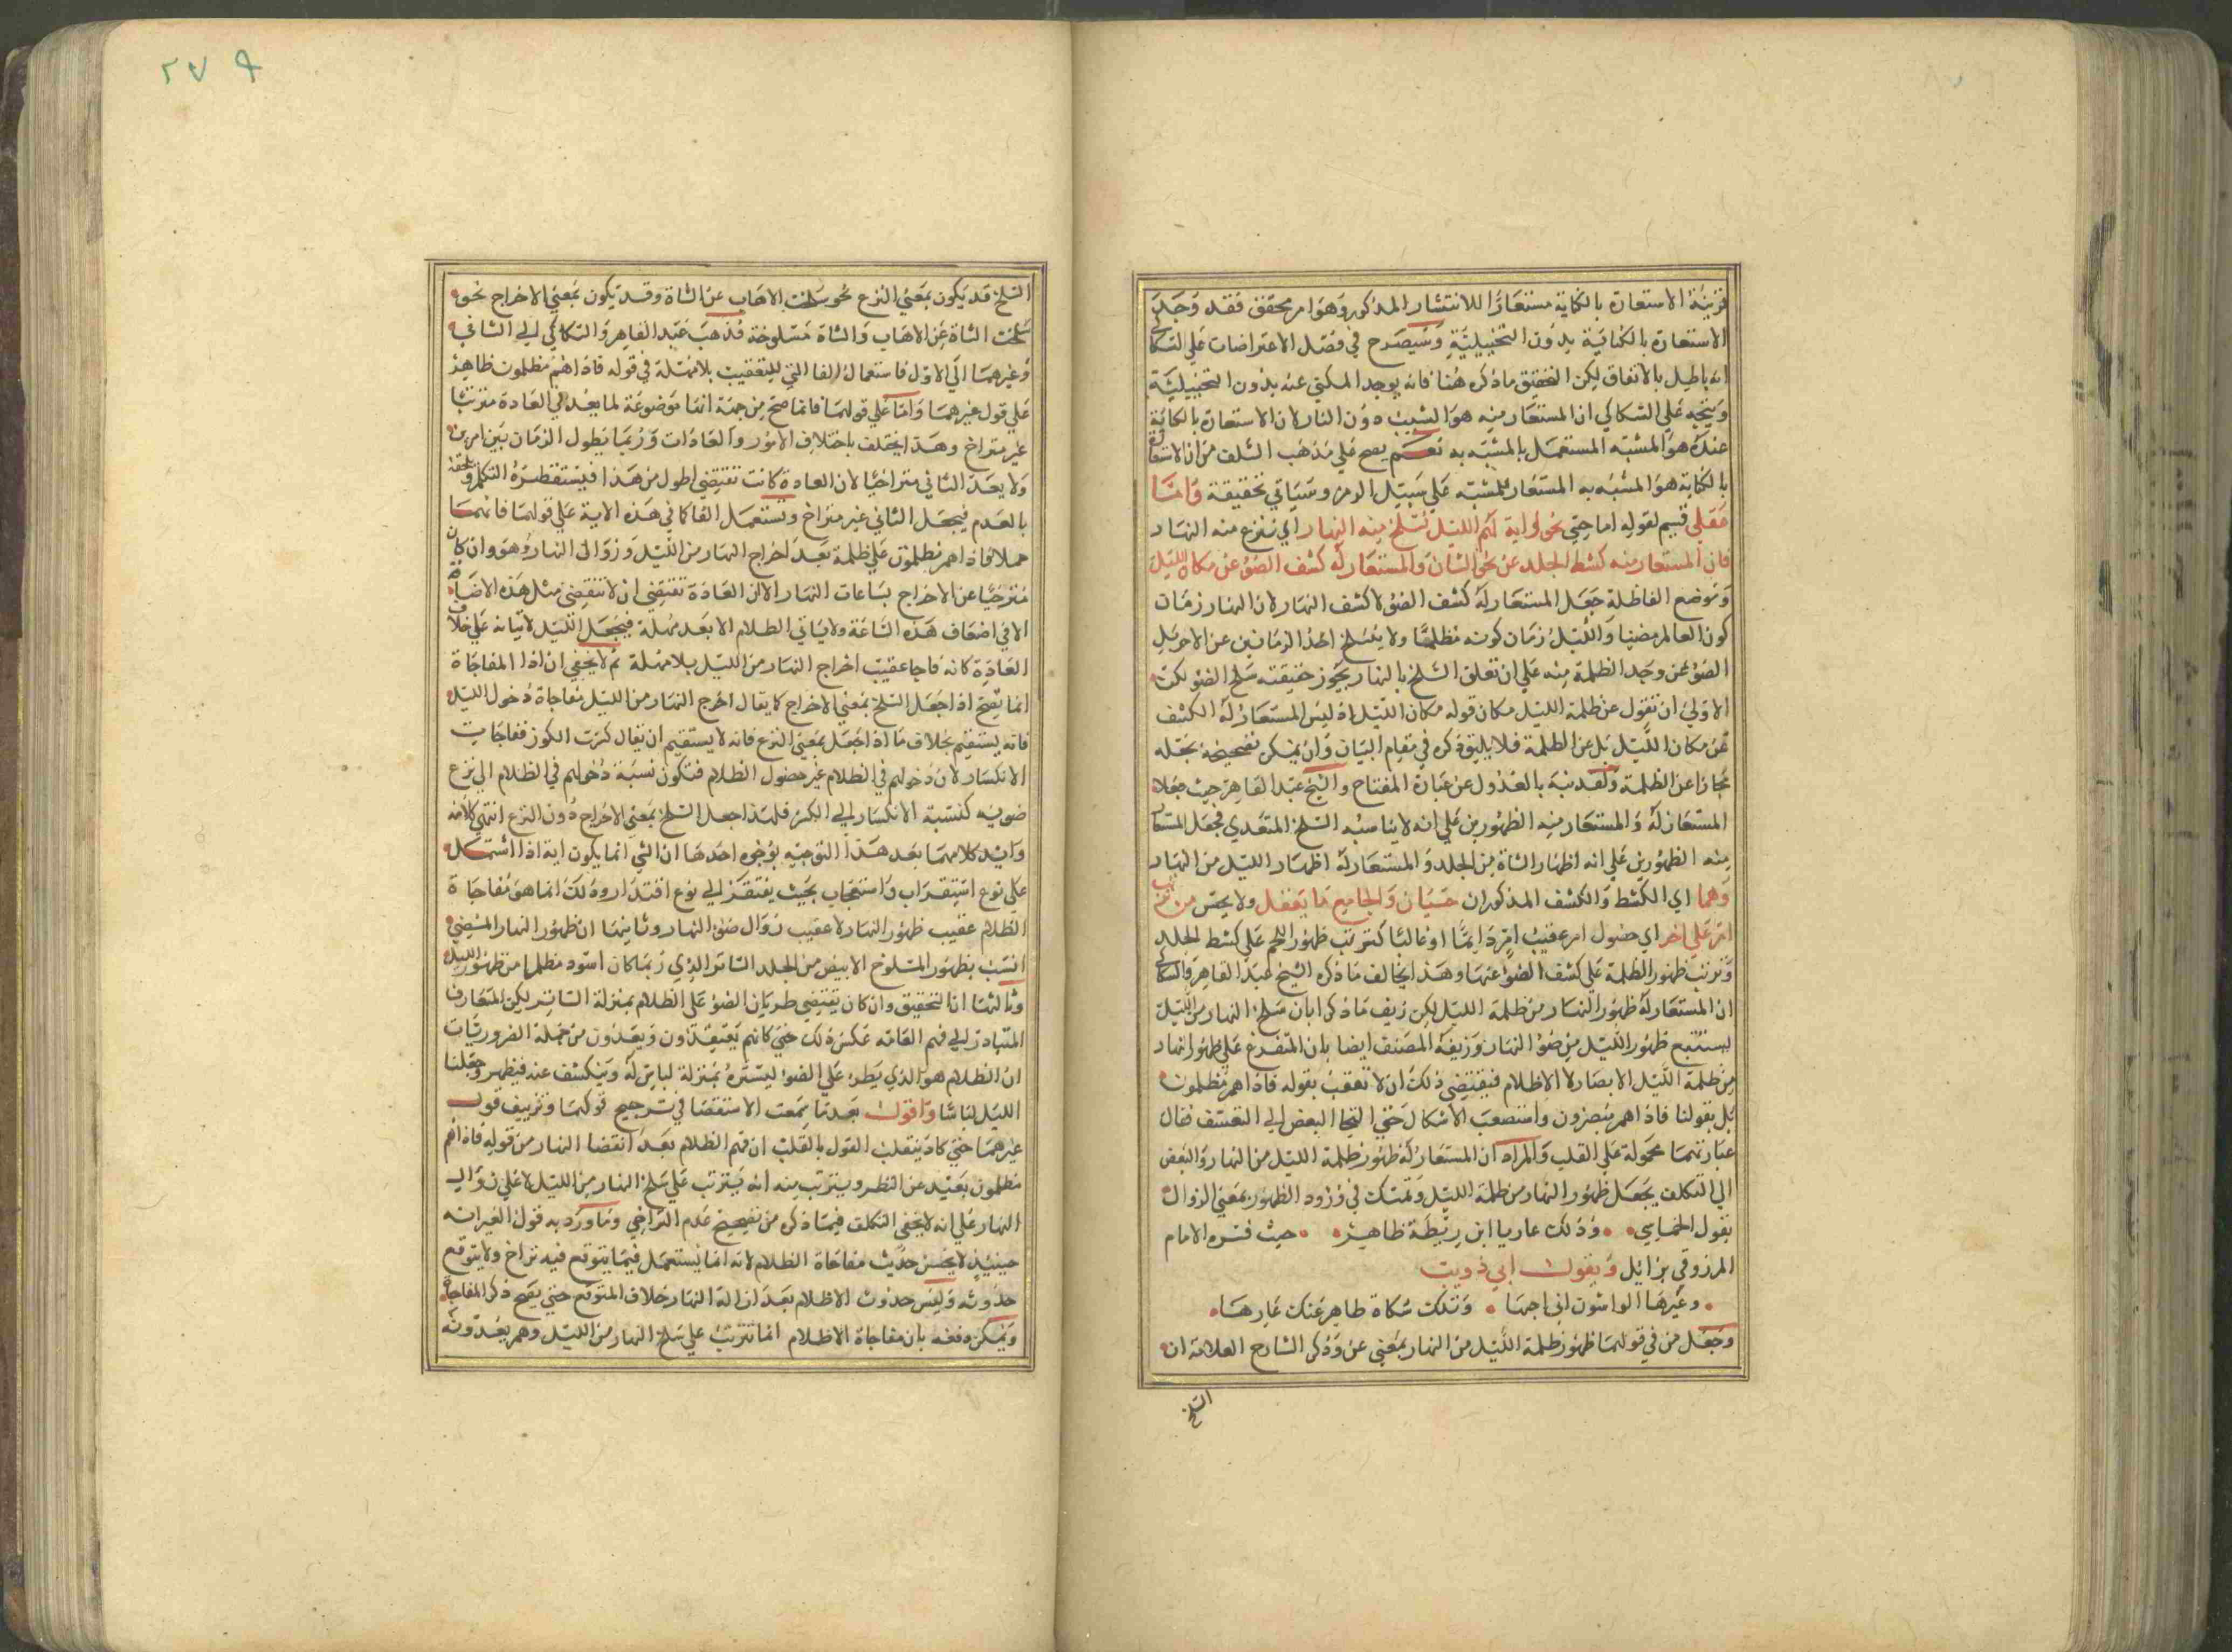 قرينة الاستعارة بالكناية مستعارا للانتشار المذكور وهو امر محقق فقد وجد
الاستعارة بالكناية بدون التخييلية وسيصرح في فصل الاعتراضات علي السكاكي
انه باطل بالاتفاق لكن التحقيق ما ذكره هنا فانه يوجد المكني عنه بدون التخييلية
ويتجه علي السكاكي ان المستعار منه هو الشيب دون النار لان الاستعارة بالكناية
عنده هو المشبه المستعمل بالمشبه به نعم يصح علي مذهب السلف من ان الاستعارة
بالكناية هو المشبه به المستعار للمشبه علي سبيل الرمز وسياتي تحقيقه واما
عقلي قسيم لقوله اما حسي نحو واية لهم الليل نسلخ منه النهار اي ننزع منه النهار
فان المستعار منه كشط الجلد عن نحو الشاة والمستعار له كشف الضوء عن مكان الليل
وتوضع الفاظلة جعل المستعار له كشف الضوء لا كشف النهار لان النهار زمان
كون العالم مضيا والليل زمان كونه مظلما ولا يسلخ احد الزمانين عن الاخر بل
الضوء عن وجه الظلمة منه علي ان تعلق السلخ بالنهار تجوز حقيقته سلخ الضوء لكن
الاولي ان تقول عن ظلمة الليل مكان قوله مكان الليل اذ ليس المستعار له الكشف
عن مكان الليل بل عن الظلمة فلا يليق ذكره في مقام البيان وان يمكن تصحيحه بجعله
مجازا عن الظلمة ولقد نبه بالعدول عن عبارة المفتاح والشيخ عبد القاهر حيث جعلا
المستعار له والمستعار منه الظهورين علي انه لا يناسبه السلخ المتعدي فجعل المستعار
منه الظهورين علي انه اظهار الشاة من الجلد والمستعار له اظهار الليل من النهار
وهما اي الكشط والكشف المذكوران حسيان والجامع ما يعقل ولا يحس من ترتب
امر علي اخر اي حصول امر عقيب امر دايما او غالبا كترتب ظهور اللحم علي كشط الجلد
وترتب ظهور الظلمة علي كشف الضوء عنها وهذا يخالف ما ذكره الشيخ عبد القاهر والسكاكي
ان المستعار له ظهور النهار من ظلمة الليل لكن زيف ما ذكرا بان سلخ النهار من الليل
يستتبع ظهور الليل من ضوء النهار وزيفه المصنف ايضا بان المتفرع علي ظهور النهار
من ظلمة الليل الابصار لا الاظلام فيقتضي ذلك ان لا تعقب بقوله فاذا هم مظلمون
بل بقولنا فاذا هم مبصرون واستصعب الاشكال حتي التجا البعض الي التعسف فقال
عبارتهما محمولة علي القلب والمراد ان المستعار له ظهور ظلمة الليل من النهار والبعض
الي التكلف بجعل ظهور النهار من ظلمة الليل وتمسك في ورود الظهور بمعني الزوال
بقول الحماسي وذلك عار يا ابن ريطة ظاهر حيث فسره الامام
المرزوقي بزائل وبقول ابي ذويب
وعيرها الواشون اني احبها وتلك شكاة ظاهر عنك عارها
وجعل من في قولهما ظهور ظلمة الليل من النهار بمعني عن وذكر الشارح العلامة ان
السلخ
٢٧٩
السلخ قد يكون بمعني النزع نحو سلخت الاهاب عن الشاة وقد يكون بمعني الاخراج نحو
سلخت الشاة عن الاهاب والشاة مسلوخة فذهب عبد القاهر والسكاكي الي الثاني
وغيرهما الي الاول فاستعمال الفا التي للتعقيب بلا مهلة في قوله فاذا هم مظلمون ظاهر
علي قول غيرهما واما علي قولهما فانما صح من جهة انها موضوعة لما يعد في العادة مترتبا
غير متراخ وهذا يختلف باختلاف الامور والعادات وربما يطول الزمان بين امرين
ولا يعد الثاني متراخيا لان العادة كانت تقتضي اطول من هذا فيستقصره المتكلم ويلحقه
بالعدم فيجعل الثاني غير متراخ وتستعمل الفا كما في هذه الاية علي قولهما فانهما
حملا فاذا هم مظلمون علي ظلمة بعد اخراج النهار من الليل وزوال النهار وهو وان كان
متراخيا عن الاخراج بساعات النهار الا ان العادة تقتضي ان لا تنقضي مثل هذه الاضاءة
الا في اضعاف هذه الساعة ولا ياتي الظلام الا بعد مهلة فيجعل الليل لاتيانه علي خلاف
العادة كانه فاجا عقيب اخراج النهار من الليل بلا مهلة ثم لا يخفي ان اذا المفاجاة
انما يصح اذا جعل السلخ بمعني الاخراج كما يقال اخرج النهار من الليل ففاجاة دخول الليل
فانه يستقيم بخلاف ما اذا جعل بمعني النزع فانه لا يستقيم ان يقال كسرت الكوز ففاجات
الانكسار لان دخولهم في الظلام غير حصول الظلام فتكون نسبة دخولهم في الظلام الي نزع
ضوءه كنسبة الانكسار الي الكسر فلهذا جعل السلخ بمعني الاخراج دون النزع انتهي كلامه
وايد كلامهما بعد هذا التوجيه بوجوه احدها ان الشي انما يكون اية اذا اشتمل
علي نوع استغراب واستعجاب بحيث يفتقر الي نوع اقتدار وذلك انما هو مفاجاة
الظلام عقيب ظهور النهار لا عقيب زوال ضوء النهار وثانيها ان ظهور النهار المضي
انسب بظهور المسلوخ الابيض من الجلد الساتر الذي ربما كان اسود مظلما من ظهور الليل
وثالثها ان التحقيق وان كان يقتضي طريان الضوء علي الظلام بمنزلة الساتر لكن المتعارف
المتبادر الي فهم العامة عكس ذلك حتي كانهم يعتقدون ويعدون من جملة الضروريات
ان الظلام هو الذي يطرء علي الضوء ليستره بمنزلة لباس له وينكشف عنه فيظهر وجعلنا
الليل لباسا واقول بعد ما سمعت الاستقصا في ترجيح قولهما وتزييف قول
غيرهما حتي كاد ينقلب القول بالقلب ان فهم الظلام بعد انقضا النهار من قوله فاذا هم
مظلمون بعيد عن النظر ويترتب منه انه يترتب علي سلخ النهار من الليل لا علي زوال
النهار علي انه لا يخفي التكلف فيما ذكره من تصحيح عدم التراخي وما ورد به قول الغير انه
حينئذ لا يحسن حديث مفاجاة الظلام لانه انما يستعمل فيما يتوقع فيه تراخ ولا يتوقع
حدوثه وليس حدوث الاظلام بعد ازالة النهار خلاف المتوقع حتي يصح ذكر المفاجاة
ويمكن دفعه بان مفاجاة الاظلام انما تترتب علي سلخ النهار من الليل وهم يعدونه